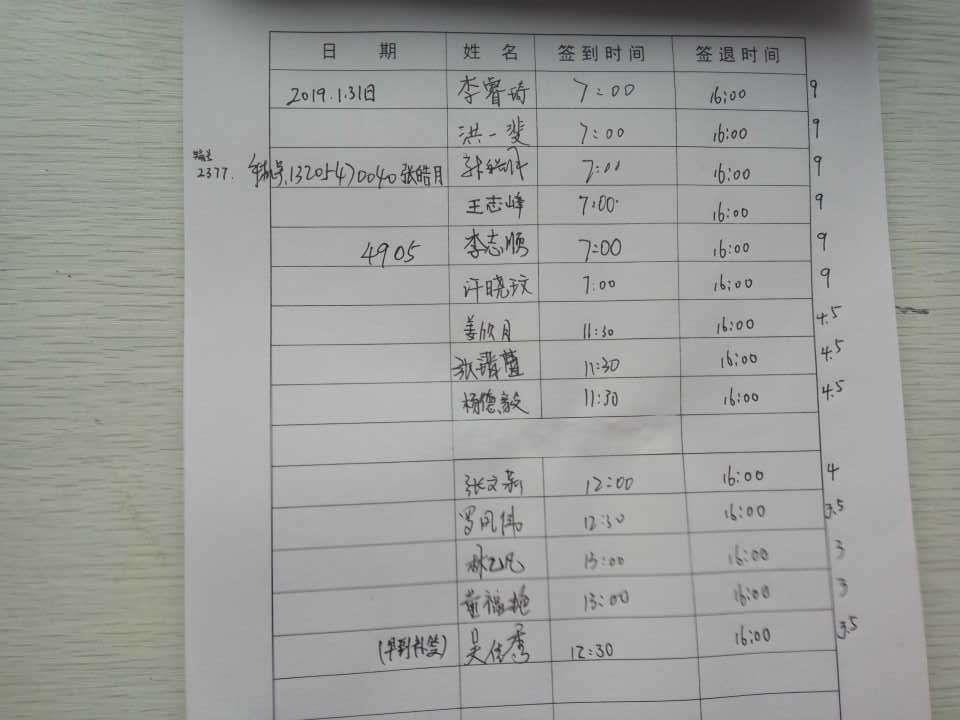 日 期 姓 名 签到时间 签退时间
2019.1.31日 李睿琦 7:00 16:00 9
洪一斐 7:00 16:00 9
编号
2377. 手机号.13205470040 张皓月 张皓月 7:00 16:00 9
王志峰 7:00 16:00 9
4905 李志顺 7:00 16:00 9
许晓玟 7:00 16:00 9
姜欣月 11:30 16:00 4.5
张 11:30 16:00 4.5
杨德毅 11:30 16:00 4.5
张文莉 12:00 16:00 4
罗凤伟 12:30 16:00 3.5
林 13:00 16:00 3
董福艳 13:00 16:00 3
(早到补签) 吴佳秀 12:30 16:00 3.5